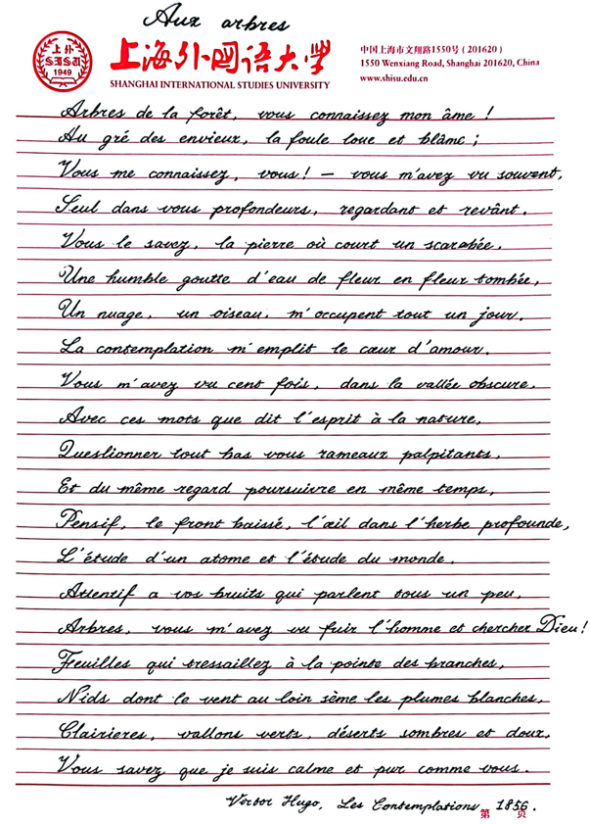 Aux arbres
上外
SISU
1949
上海外国语大学
SHANGHAI INTERNATIONAL STUDIES UNIVERSITY
中国上海市文翔路1550号(201620)
1550 Wenxiang Road, Shanghai 201620, China
www.shisu.edu.cn
Arbres de la forêt, vous connaissez mon âme !
Au gré des envieux, la foule loue et blâme ;
Vous me connaissez, vous ! — vous m'avez vu souvent,
Seul dans vous profondeurs, regardant et revânt.
Vous le savez, la pierre où court un scarabée,
Une humble goutte d'eau de fleur en fleur tombée,
Un nuage, un oiseau, m'occupent tout un jour.
La contemplation m'emplit le cœur d'amour.
Vous m'avez vu cent fois, dans la vallée obscure,
Avec ces mots que dit l'esprit à la nature,
Questionner tout bas vous rameaux palpitants,
Et du même regard poursuivre en même temps,
Pensif, le front baissé, l'œil dans l'herbe profounde,
L'étude d'un atome et l'étude du monde.
Attentif a vos bruits qui parlent tous un peu,
Arbres, vous m'avez vu fuir l'homme et chercher Dieu !
Feuilles qui tressaillez à la pointe des branches,
Nids dont le vent au loin sème les plumes blanches,
Clairieres, vallons verts, déserts sombres et doux,
Vous savez que je suis calme et pur comme vous.
Victor Hugo, Les Contemplations, 1856.
第 页